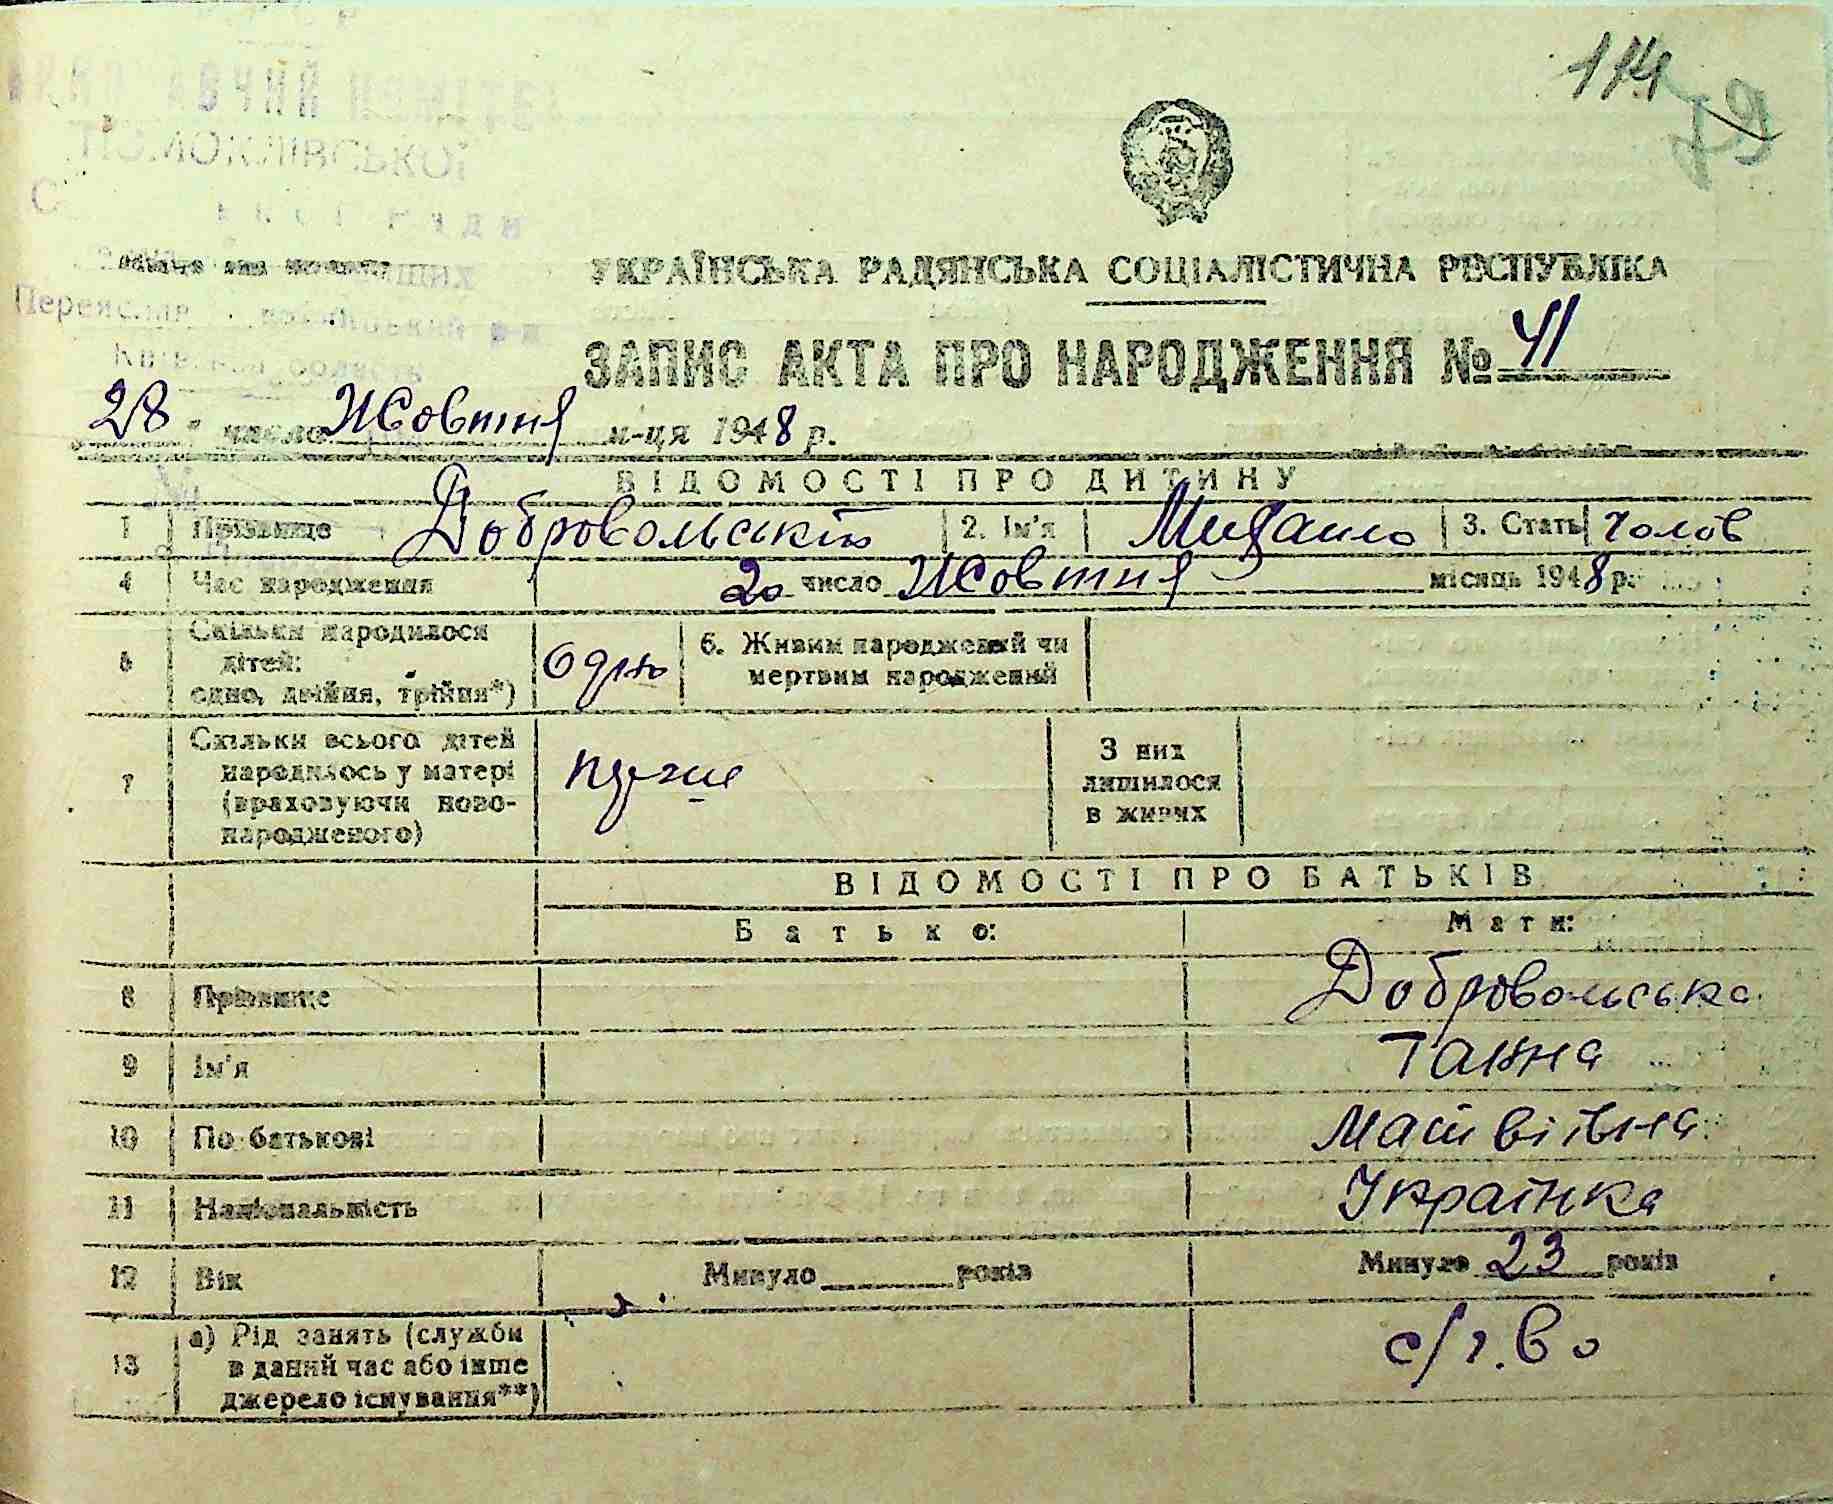 174
ПОМОКЛІВСЬКОЇ
УКРАЇНСЬКА РАДЯНСЬКА СОЦІАЛІСТИЧНА РЕСПУБЛІКА
ЗАПИС АКТА ПРО НАРОДЖЕННЯ № 41
28 число Жовтня м-ця 1948 р.
ВІДОМОСТІ ПРО ДИТИНУ
1 Прізвище Добровольський 2. Ім'я Михайло 3. Стать чолов
4 Час народження 20 число Жовтня місяць 1948 р.
5 Скільки народилося дітей: одно, двійня, трійня*) Одно 6. Живим народжений чи мертвим народжений
7 Скільки всього дітей народилось у матері (враховуючи новонародженого) перше З них лишилося в живих
ВІДОМОСТІ ПРО БАТЬКІВ
Батько: Мати:
8 Прізвище Добровольська
9 Ім'я Ганна
10 По батькові Матвіївна
11 Національність Українка
12 Вік Минуло років Минуло 23 років
13 а) Рід занять (служби в даний час або інше джерело існування**) с/г. во